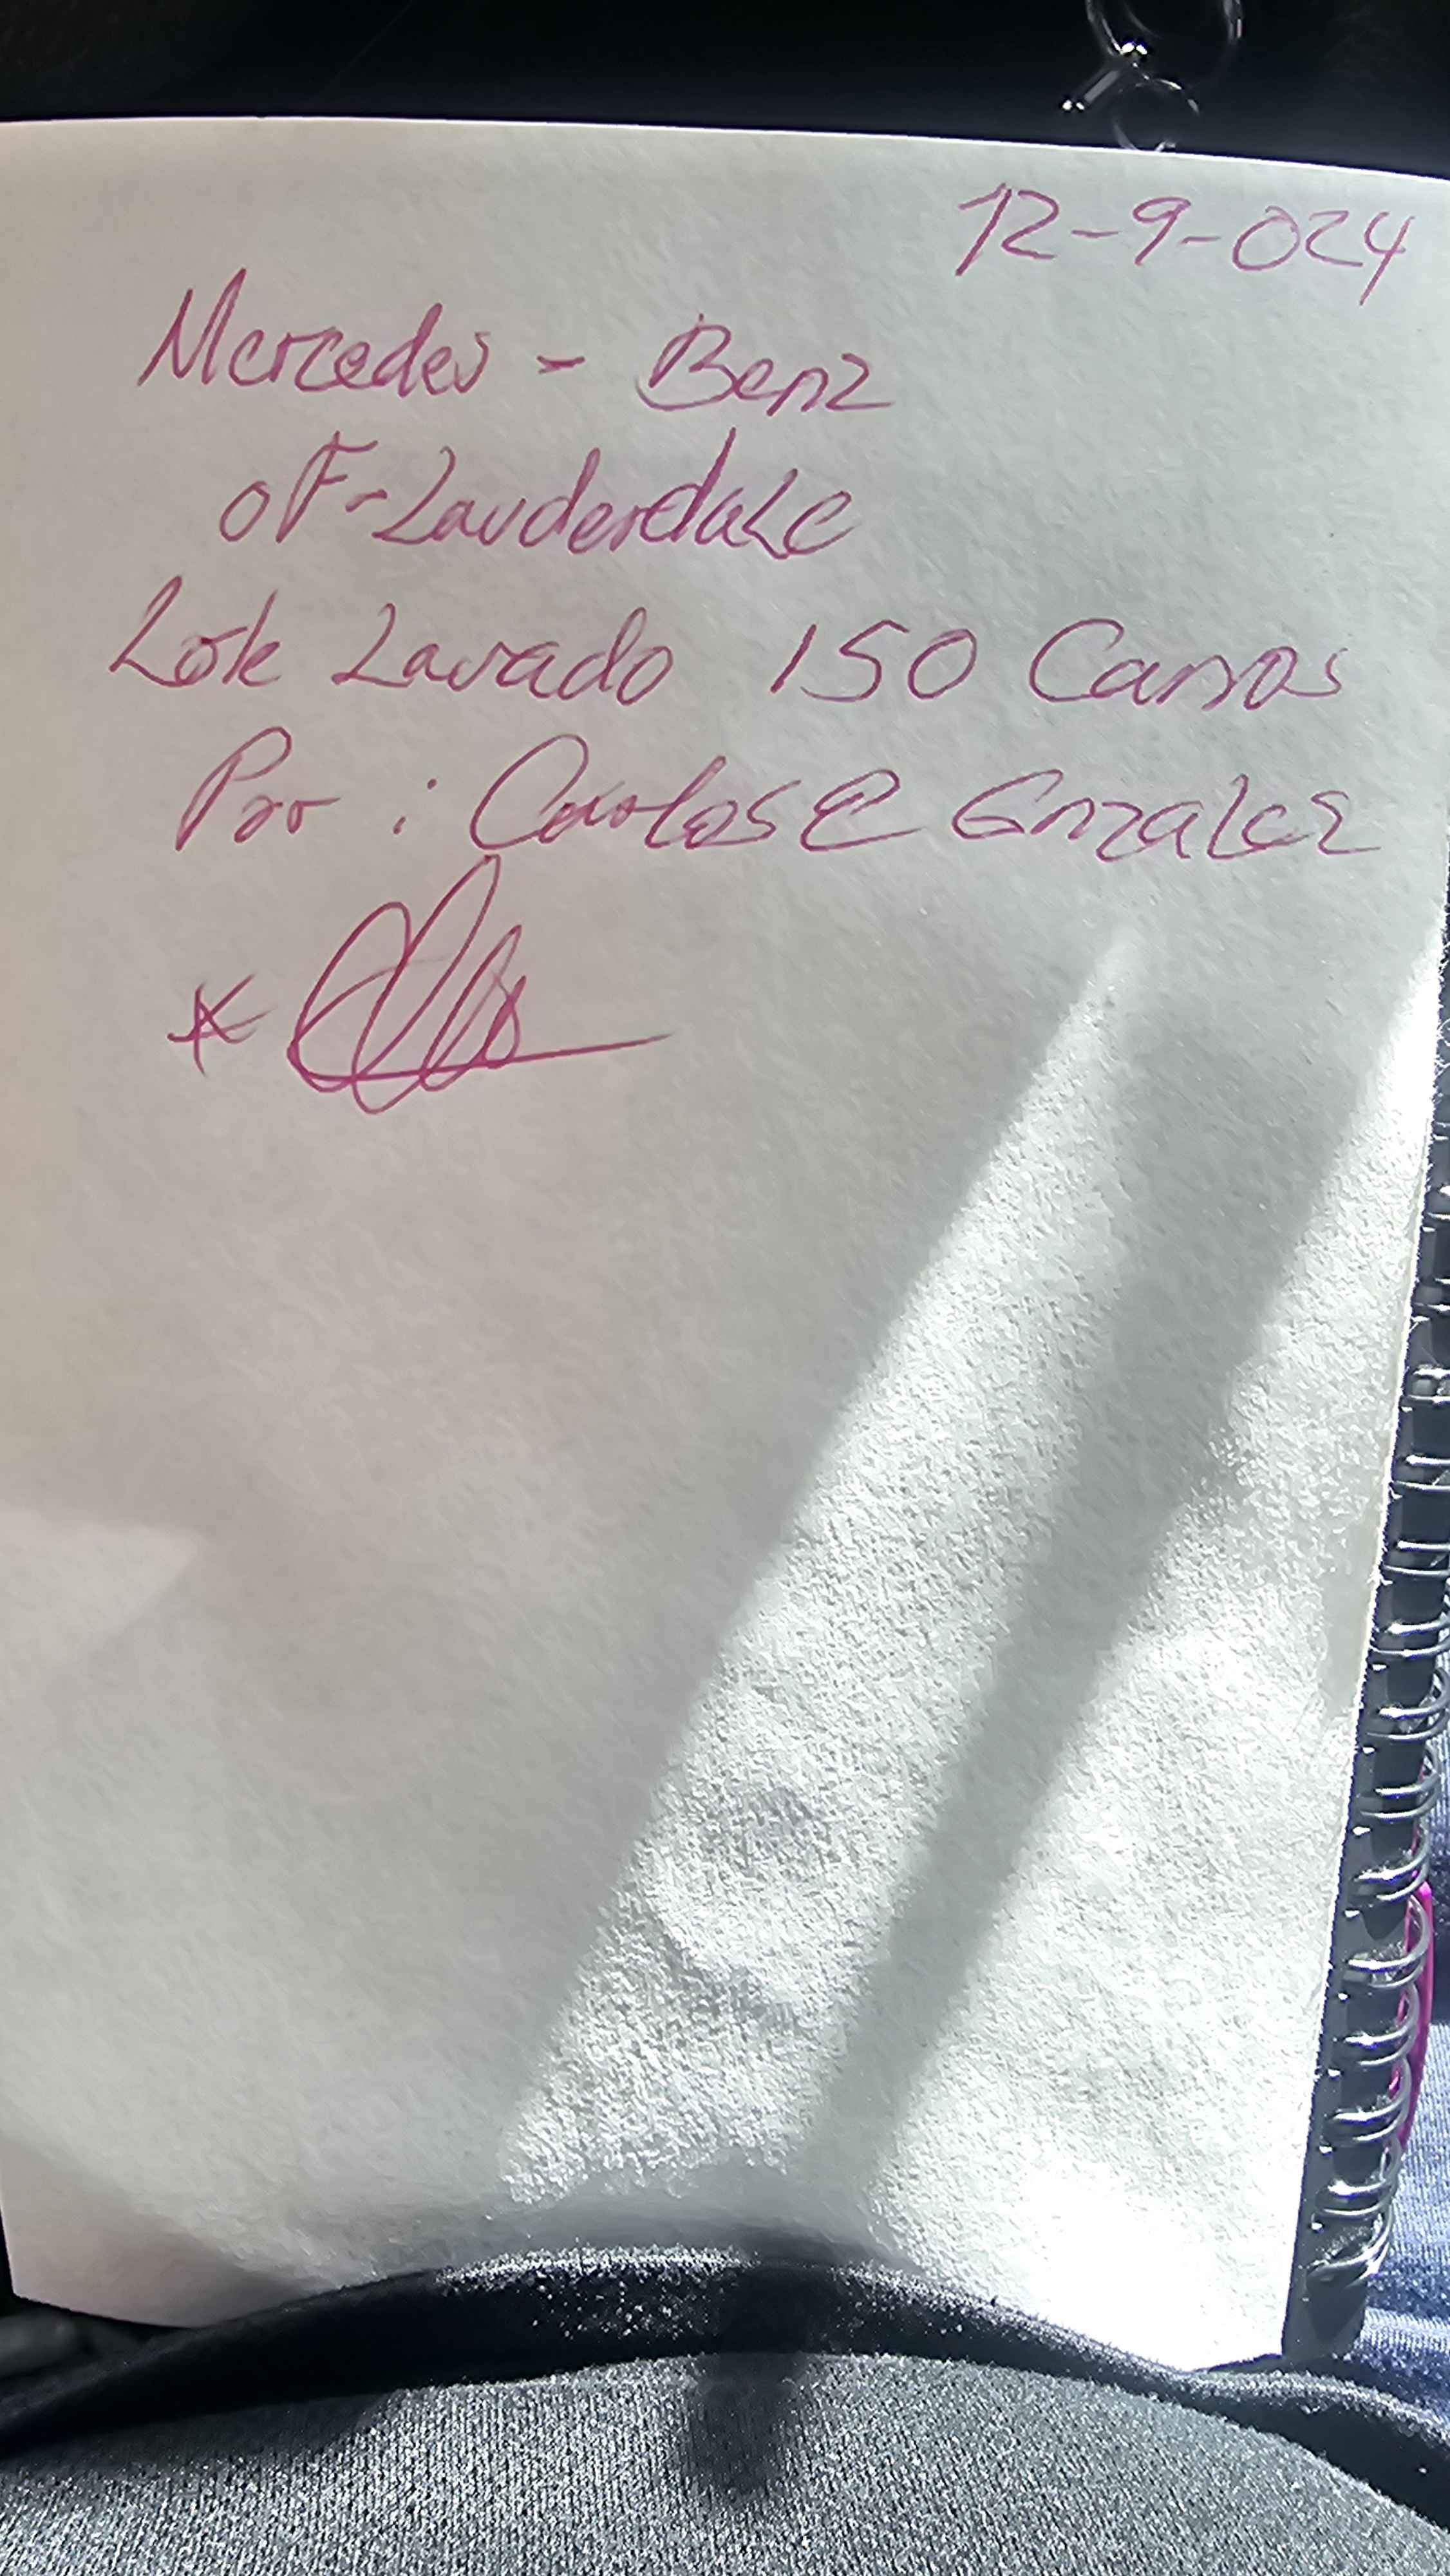 12-9-024
Mercedes - Benz
oF-Lauderdale
Lote Lavado 150 Carros
Por : Carlos E Gnzalez